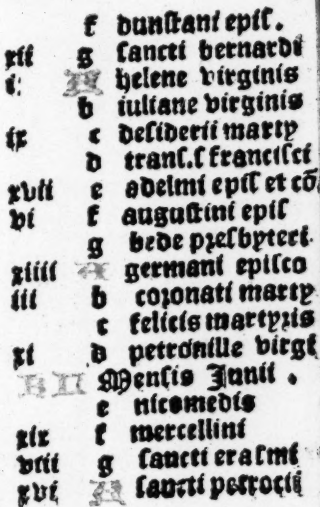 f dunſtani epiſ.
xii g ſancti bernardi
i. A helene virginis
b iuliane virginis
ix c deſiderii marty
d tranſ.ſ franciſci
xvii e adelmi epiſ et cō
vi f auguſtini epiſ
g bede preſbyteri
xiiii A germani epiſco
iii b coronati marty
c felicis martyris
xi d petronille virgi
KL Menſis Junii .
e nicomedis
xix f mercellini
viii g ſancti eraſmi
xvi A ſancti petrocii